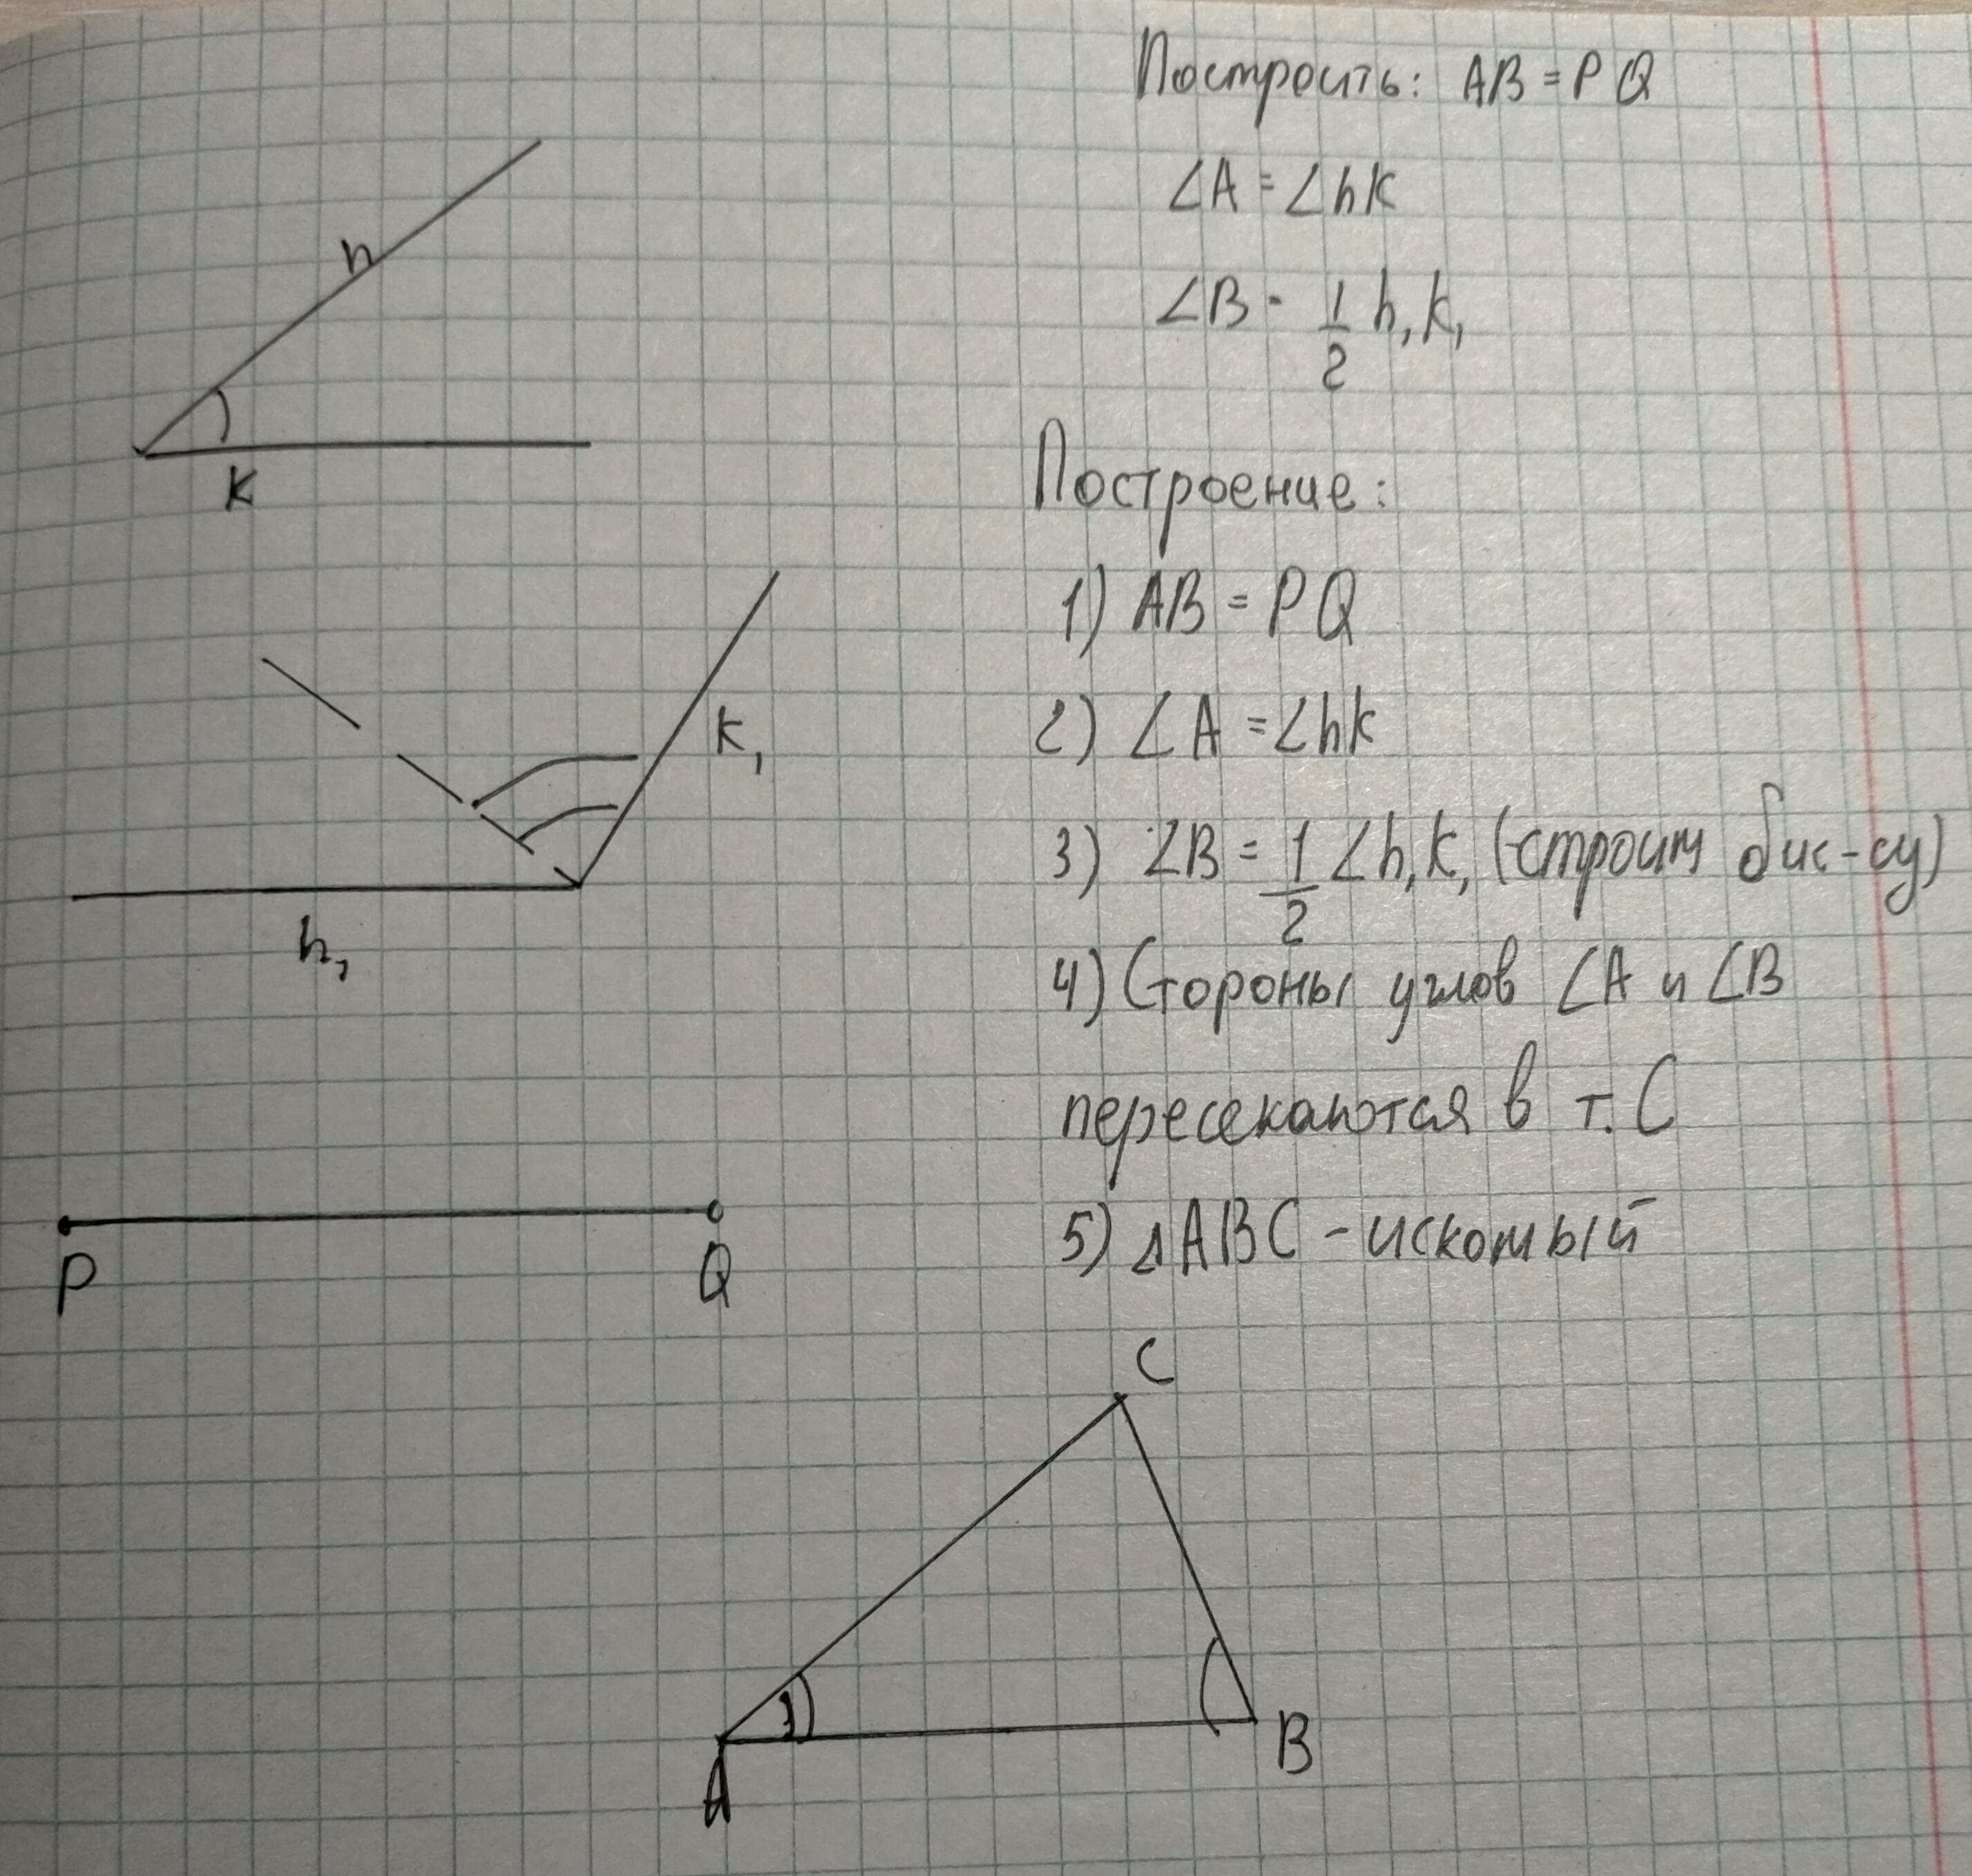 Построить: AB = PQ
∠A = ∠hk
∠B = 1/2 h₁k₁
h
k
Построение:
1) AB = PQ
2) ∠A = ∠hk
3) ∠B = 1/2 ∠h₁k₁ (строим бис-су)
k₁
h₁
4) Стороны углов ∠A и ∠B
пересекаются в т. C
5) △ABC - искомый
P
Q
C
A
B